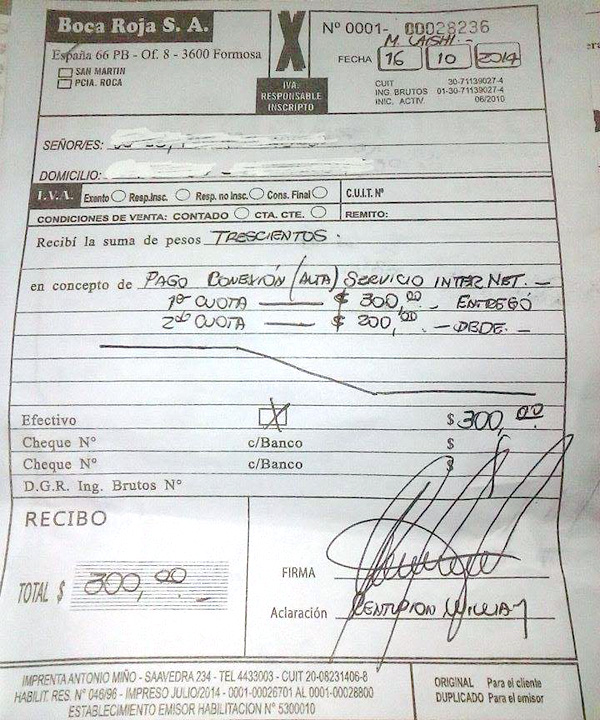 Boca Roja S. A.
España 66 PB - Of. 8 - 3600 Formosa
SAN MARTIN
PCIA. ROCA
X
IVA:
RESPONSABLE
INSCRIPTO
Nº 0001- 00028236
M. LAISHI.-
FECHA 16 10 2014
CUIT 30-71139027-4
ING. BRUTOS 01-30-71139027-4
INIC. ACTIV. 06/2010
SEÑOR/ES:
DOMICILIO:
I.V.A. Exento Resp.insc. Resp. no insc. Cons. Final C.U.I.T. Nº
CONDICIONES DE VENTA: CONTADO CTA. CTE. REMITO:
Recibí la suma de pesos TRESCIENTOS.
en concepto de PAGO CONEXIÓN (ALTA) SERVICIO INTERNET. -
1ª CUOTA — $ 300,00. ENTREGÓ
2da CUOTA — $ 200,00. - DEBE. -
Efectivo X $ 300,00
Cheque Nº c/Banco $
Cheque Nº c/Banco $
D.G.R. Ing. Brutos Nº
RECIBO
TOTAL $ 300,00.-
FIRMA
Aclaración CENTURION WILLIAM
IMPRENTA ANTONIO MIÑO - SAAVEDRA 234 - TEL 4433003 - CUIT 20-08231406-8
HABILIT. RES. N° 046/96 - IMPRESO JULIO/2014 - 0001-00026701 AL 0001-00028800
ESTABLECIMIENTO EMISOR HABILITACION N° 5300010
ORIGINAL Para el cliente
DUPLICADO Para el emisor